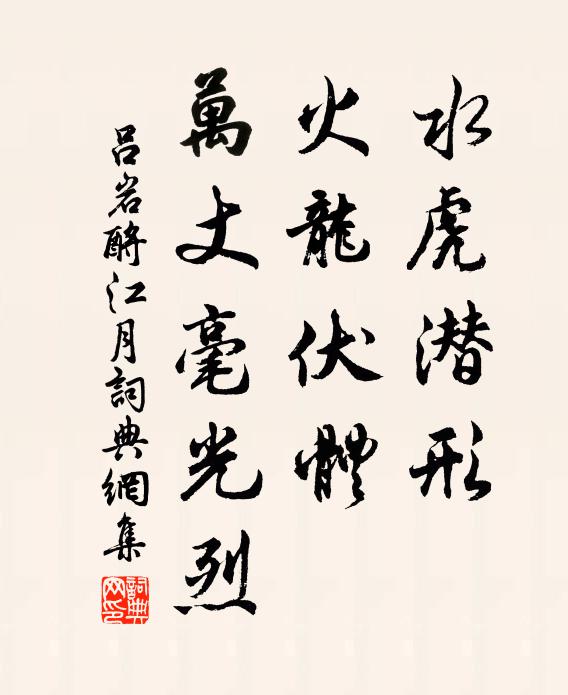 水虎潜形
火龍伏體
萬丈毫光烈
吕岩酹江月詞典網集
詞典網印